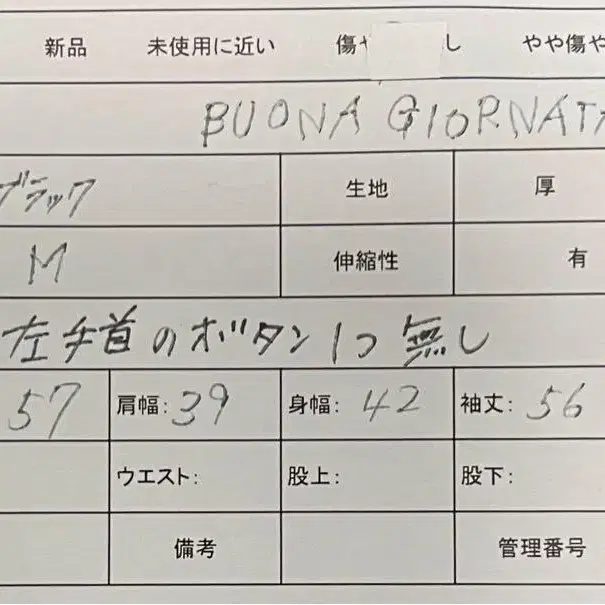 新品 未使用に近い 傷や し やや傷や
BUONA GIORNATA
ブラック 生地 厚
M 伸縮性 有
左手首のボタン1つ無し
57 肩幅: 39 身幅: 42 袖丈: 56
ウエスト: 股上: 股下:
備考 管理番号